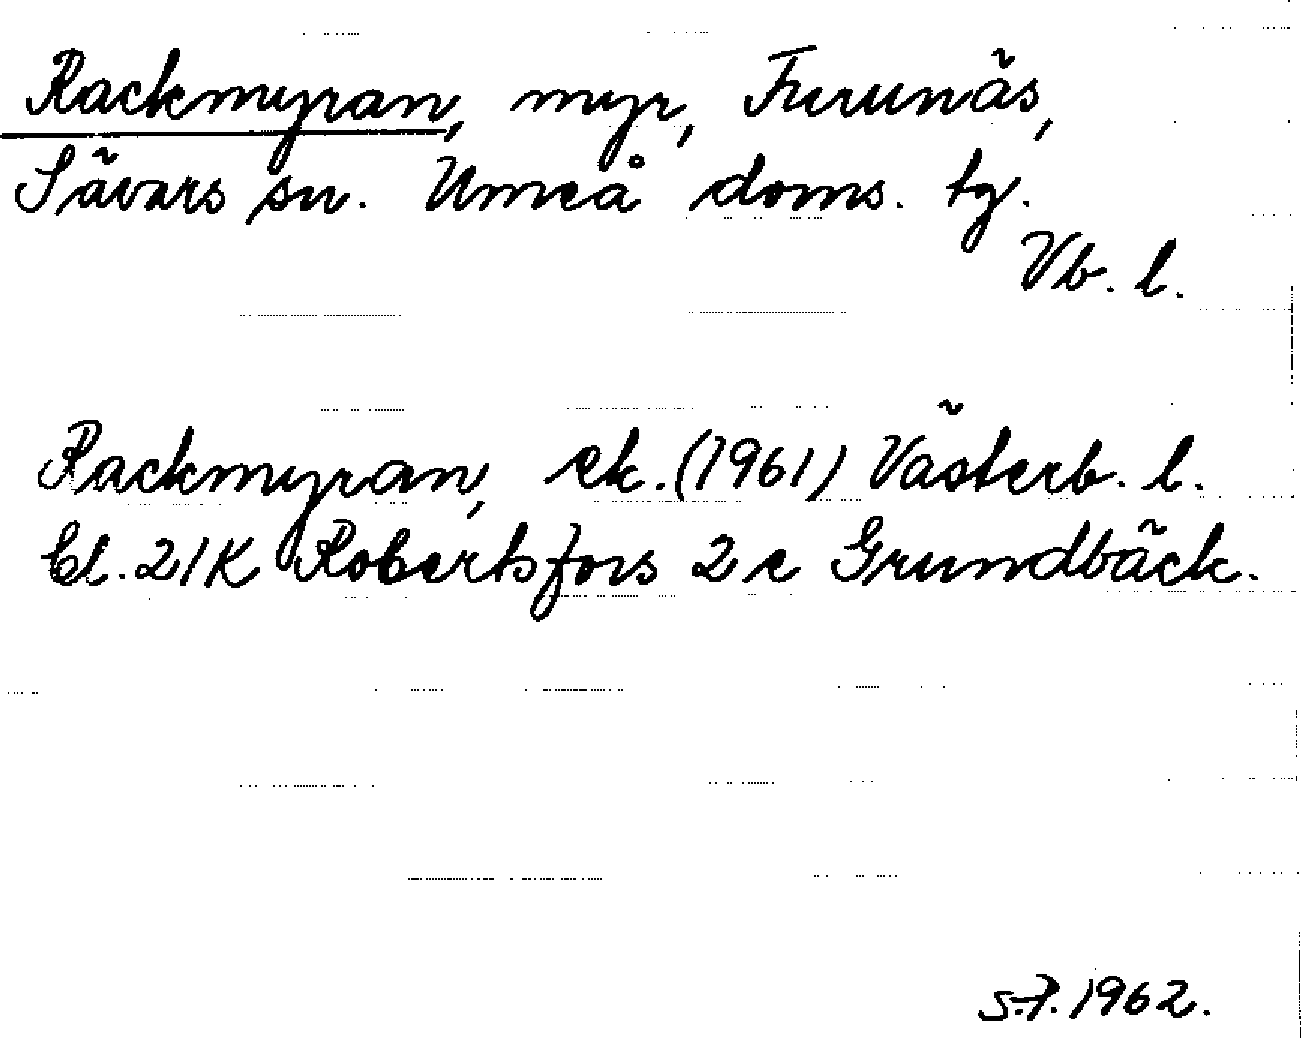 Rackmyran, myr, Furunäs,
Sävars sn. Umeå doms. tg.
Vb. l.
Rackmyran, ek. (1961) Västerb. l.
bl. 21K Robertsfors 2 e Grundbäck.
1962.